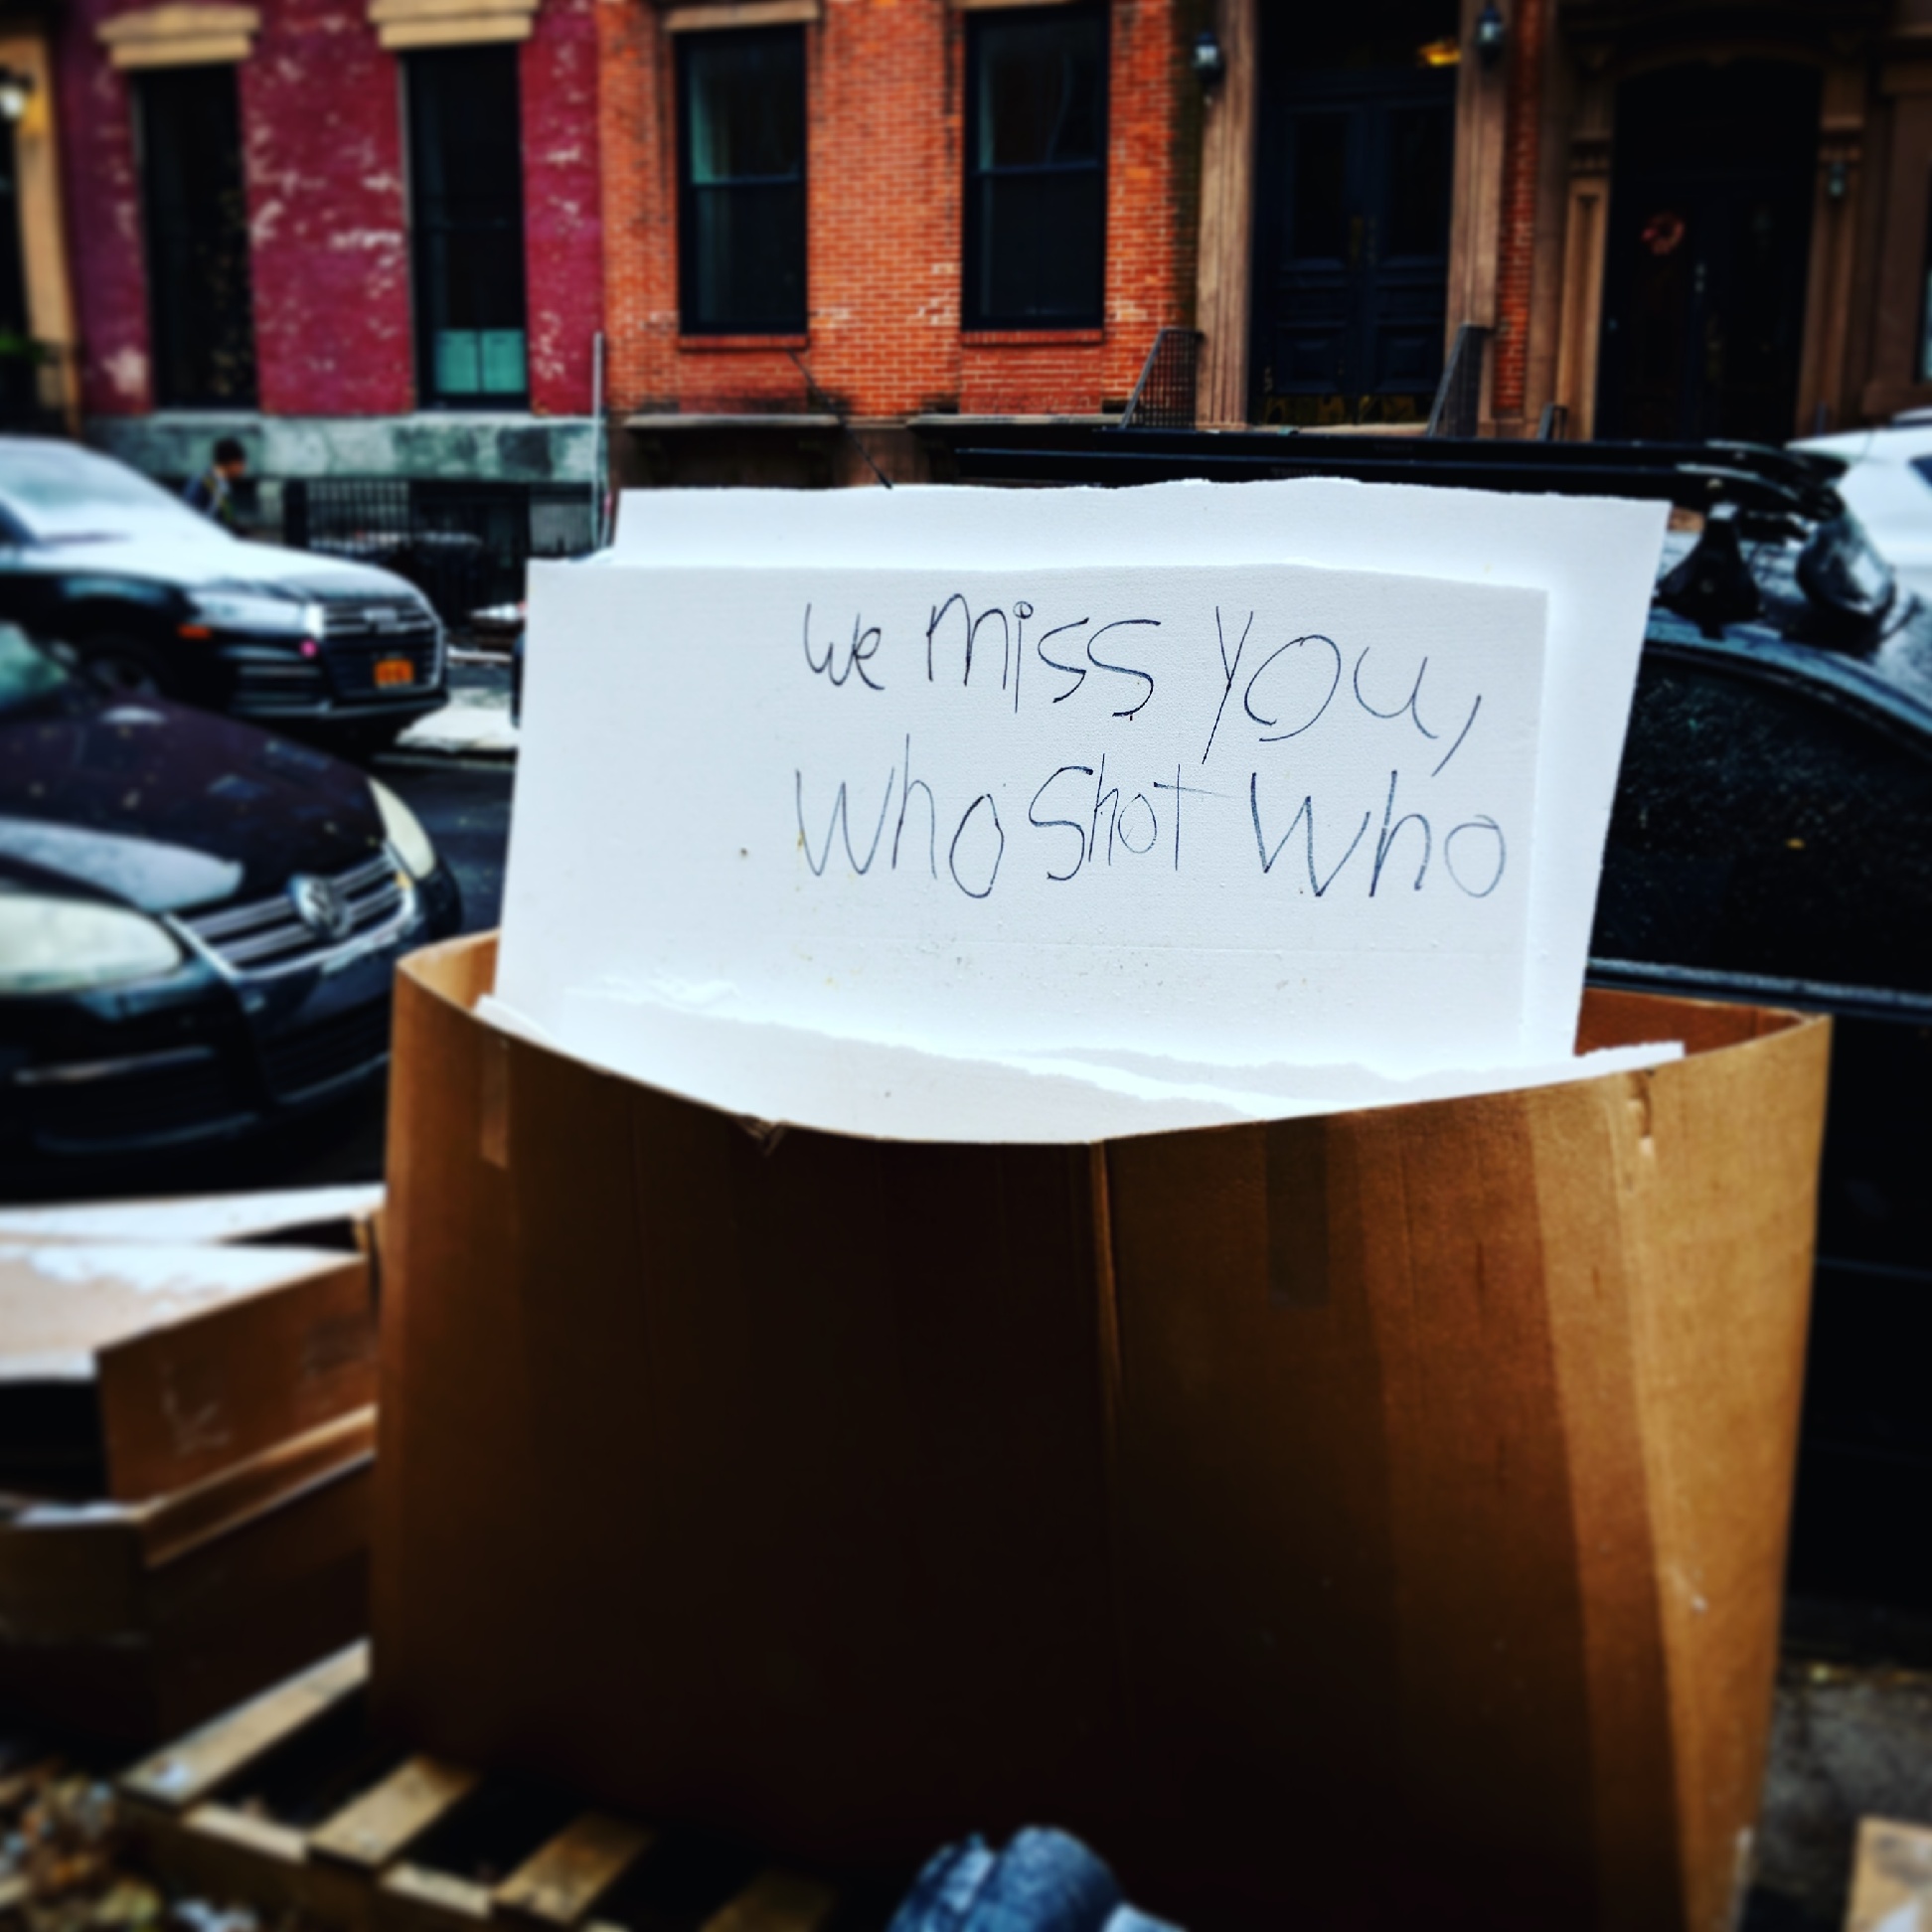 We miss you,
Who Shot Who